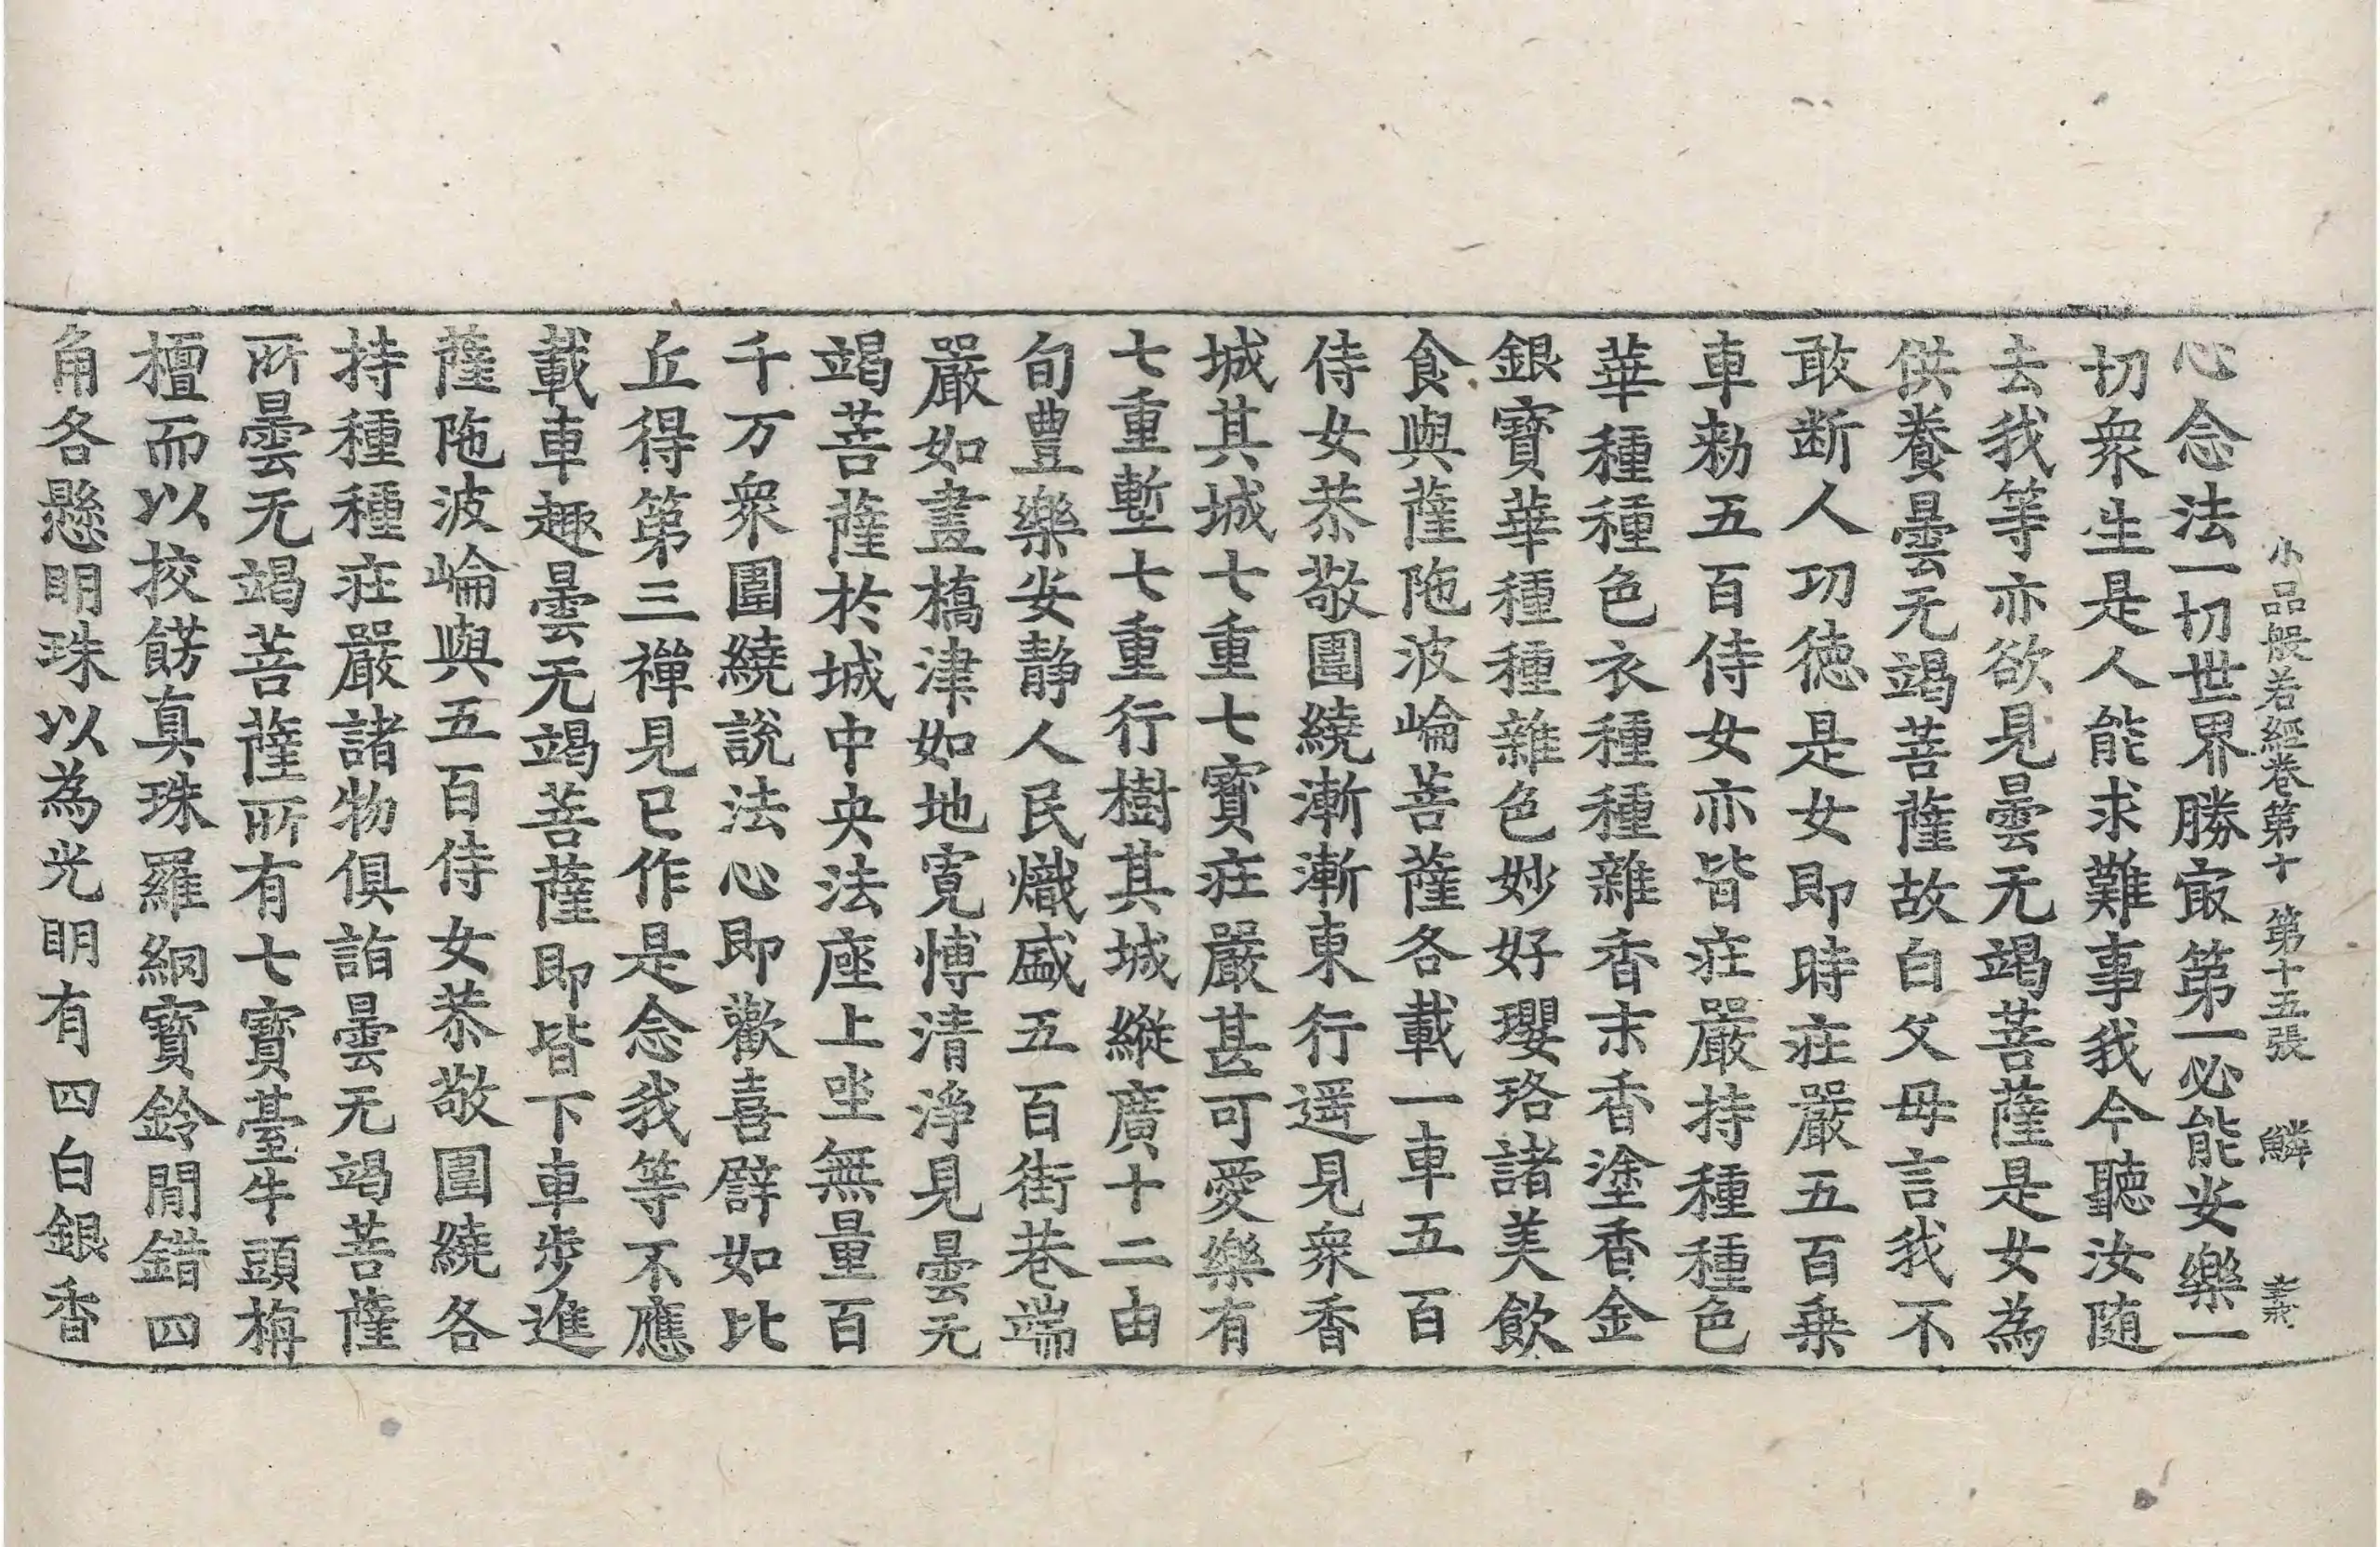 小品般若經卷第十 第十五張 鱗
心念法一切世界勝㝡第一必能安樂一
切衆生是人能求難事我今聽汝随
去我等亦欲見曇无竭菩薩是女為
供養曇无竭菩薩故白父母言我不
敢断人功徳是女即時庄嚴五百乗
車勑五百侍女亦皆庄嚴持種種色
華種種色衣種種雜香末香塗香金
銀寶華種種雜色妙好瓔珞諸美飲
食與薩陁波崘菩薩各載一車五百
侍女恭敬圍繞漸漸東行遥見衆香
城其城七重七寶庄嚴甚可愛樂有
七重塹七重行樹其城縱廣十二由
旬豊樂安静人民熾盛五百街巷端
嚴如畫橋津如地寬愽清淨見曇无
竭菩薩於城中央法座上坐無量百
千万衆圍繞説法心即歡喜譬如比
丘得第三禪見已作是念我等不應
載車趣曇无竭菩薩即皆下車步進
薩陁波崘與五百侍女恭敬圍繞各
持種種庄嚴諸物俱詣曇无竭菩薩
所曇无竭菩薩所有七寶臺牛頭栴
檀而以挍餝真珠羅網寶鈴間錯四
角各懸明珠以為光明有四白銀香